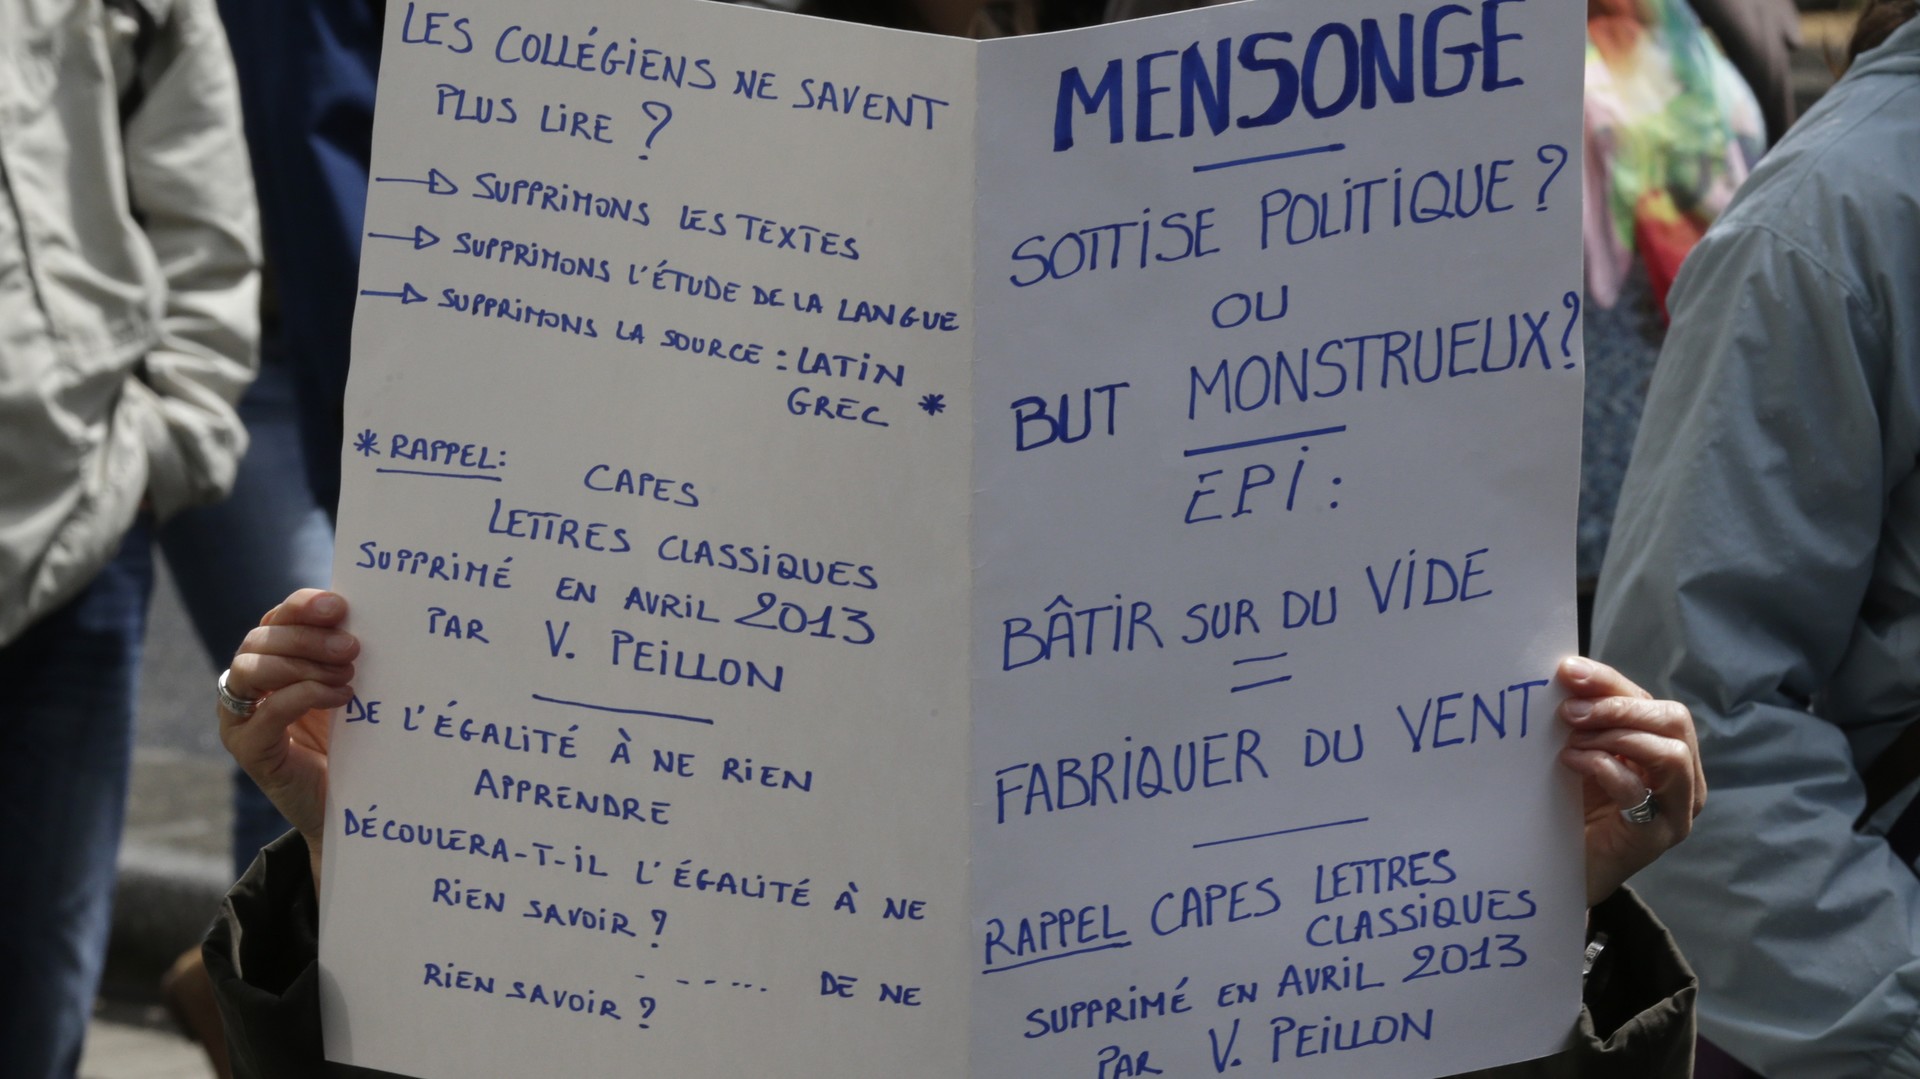 LES COLLÉGIENS NE SAVENT
PLUS LIRE ?
→ SUPPRIMONS LES TEXTES
→ SUPPRIMONS L'ÉTUDE DE LA LANGUE
→ SUPPRIMONS LA SOURCE : LATIN
GREC *
* RAPPEL : CAPES
LETTRES CLASSIQUES
SUPPRIMÉ EN AVRIL 2013
PAR V. PEILLON
DE L'ÉGALITÉ À NE RIEN
APPRENDRE
DÉCOULERA-T-IL L'ÉGALITÉ À NE
RIEN SAVOIR ?
- - - ... DE NE
RIEN SAVOIR ?
MENSONGE
SOTTISE POLITIQUE ?
OU
BUT MONSTRUEUX ?
EPI :
BÂTIR SUR DU VIDE
=
FABRIQUER DU VENT
RAPPEL CAPES LETTRES
CLASSIQUES
SUPPRIMÉ EN AVRIL 2013
PAR V. PEILLON